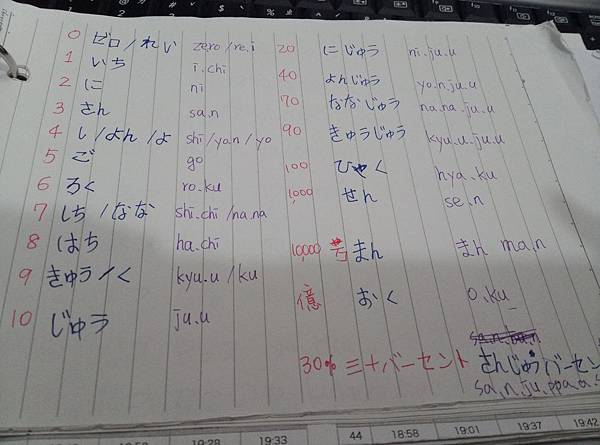 0 ゼロ/れい zero/re.i
1 いち i.chi
2 に ni
3 さん sa.n
4 し/よん/よ shi/yo.n/yo
5 ご go
6 ろく ro.ku
7 しち/なな shi.chi/na.na
8 はち ha.chi
9 きゅう/く kyu.u/ku
10 じゅう ju.u
20 にじゅう ni.ju.u
40 よんじゅう yo.n.ju.u
70 ななじゅう na.na.ju.u
90 きゅうじゅう kyu.u.ju.u
100 ひゃく hya.ku
1,000 せん se.n
10,000 万 まん まん ma.n
億 おく o.ku
30% 三十バーセント さんじゅうバーセン
sa.n.ju.ppa.a.s
19:28 19:33 44 18:58 19:01 19:37 19:42